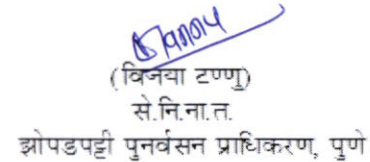 (विजया टण्णु)
से.नि.ना.त.
झोपडपट्टी पुनर्वसन प्राधिकरण, पुणे